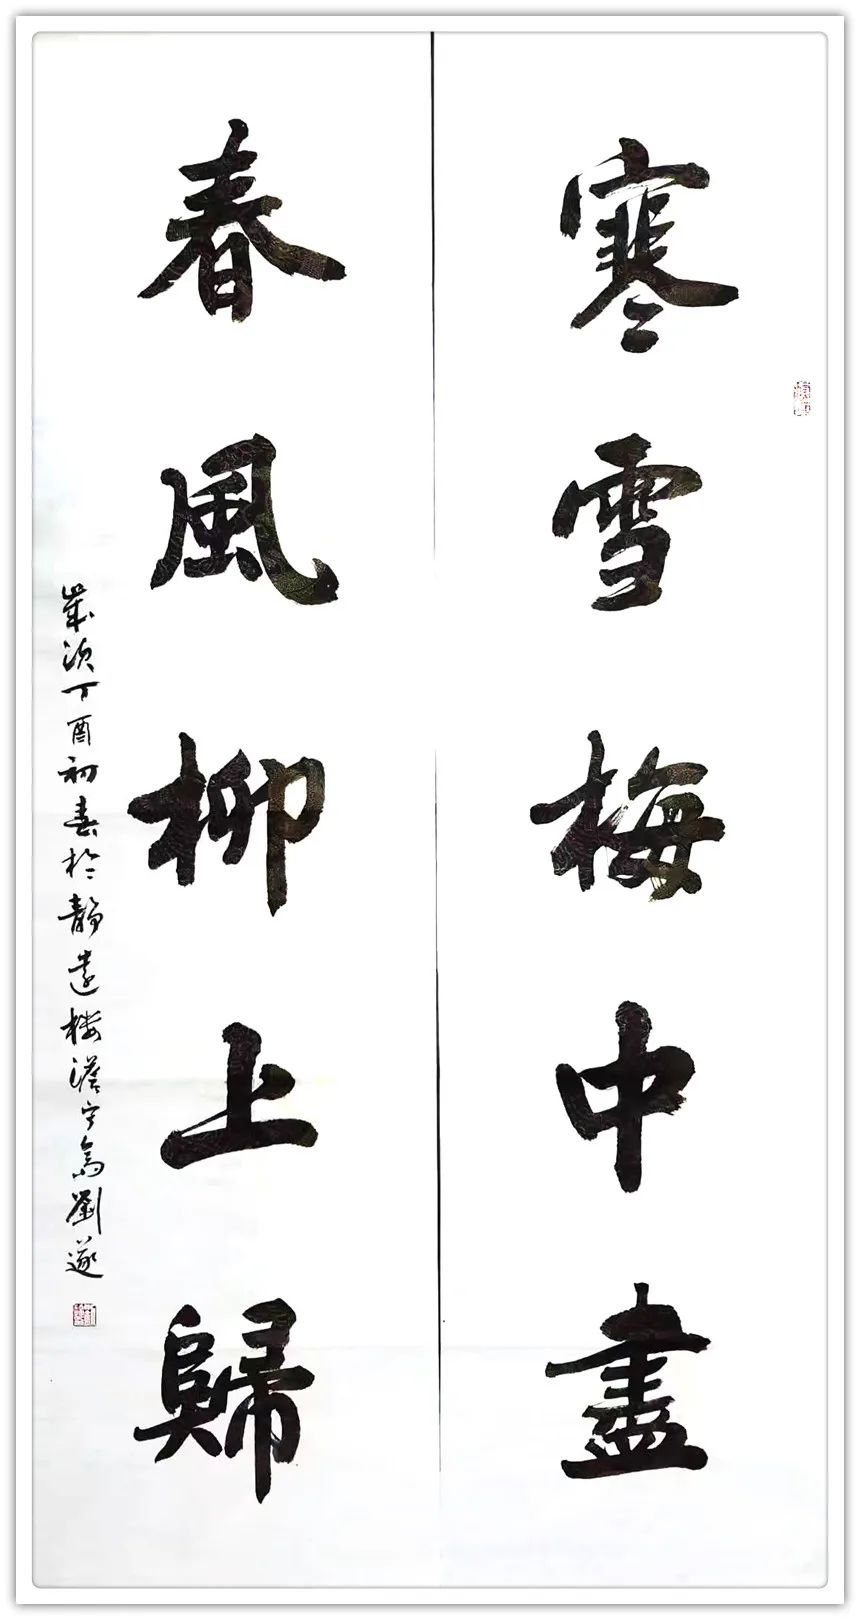 寒雪梅中盡
春風柳上歸
歲次丁酉初春於靜遠樓澹宁斋劉遂